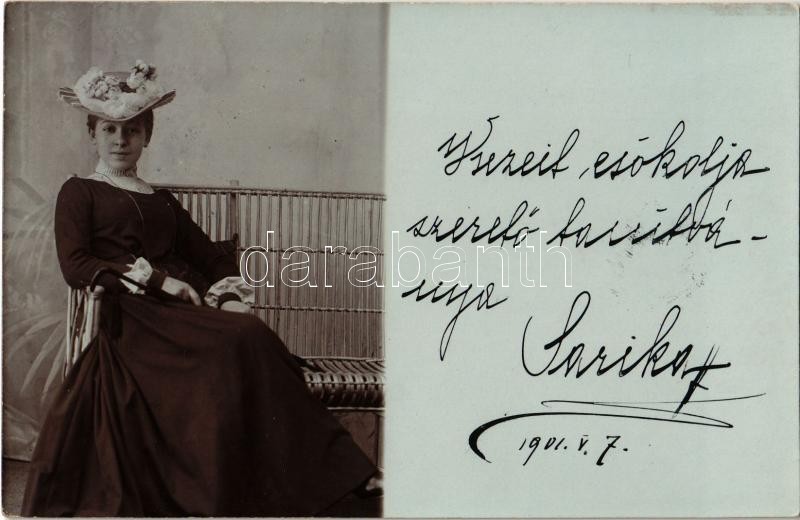 Kezeit csókolja
szerető tanítvá-
nya
Sarika
1901. V. 7.
darabanth